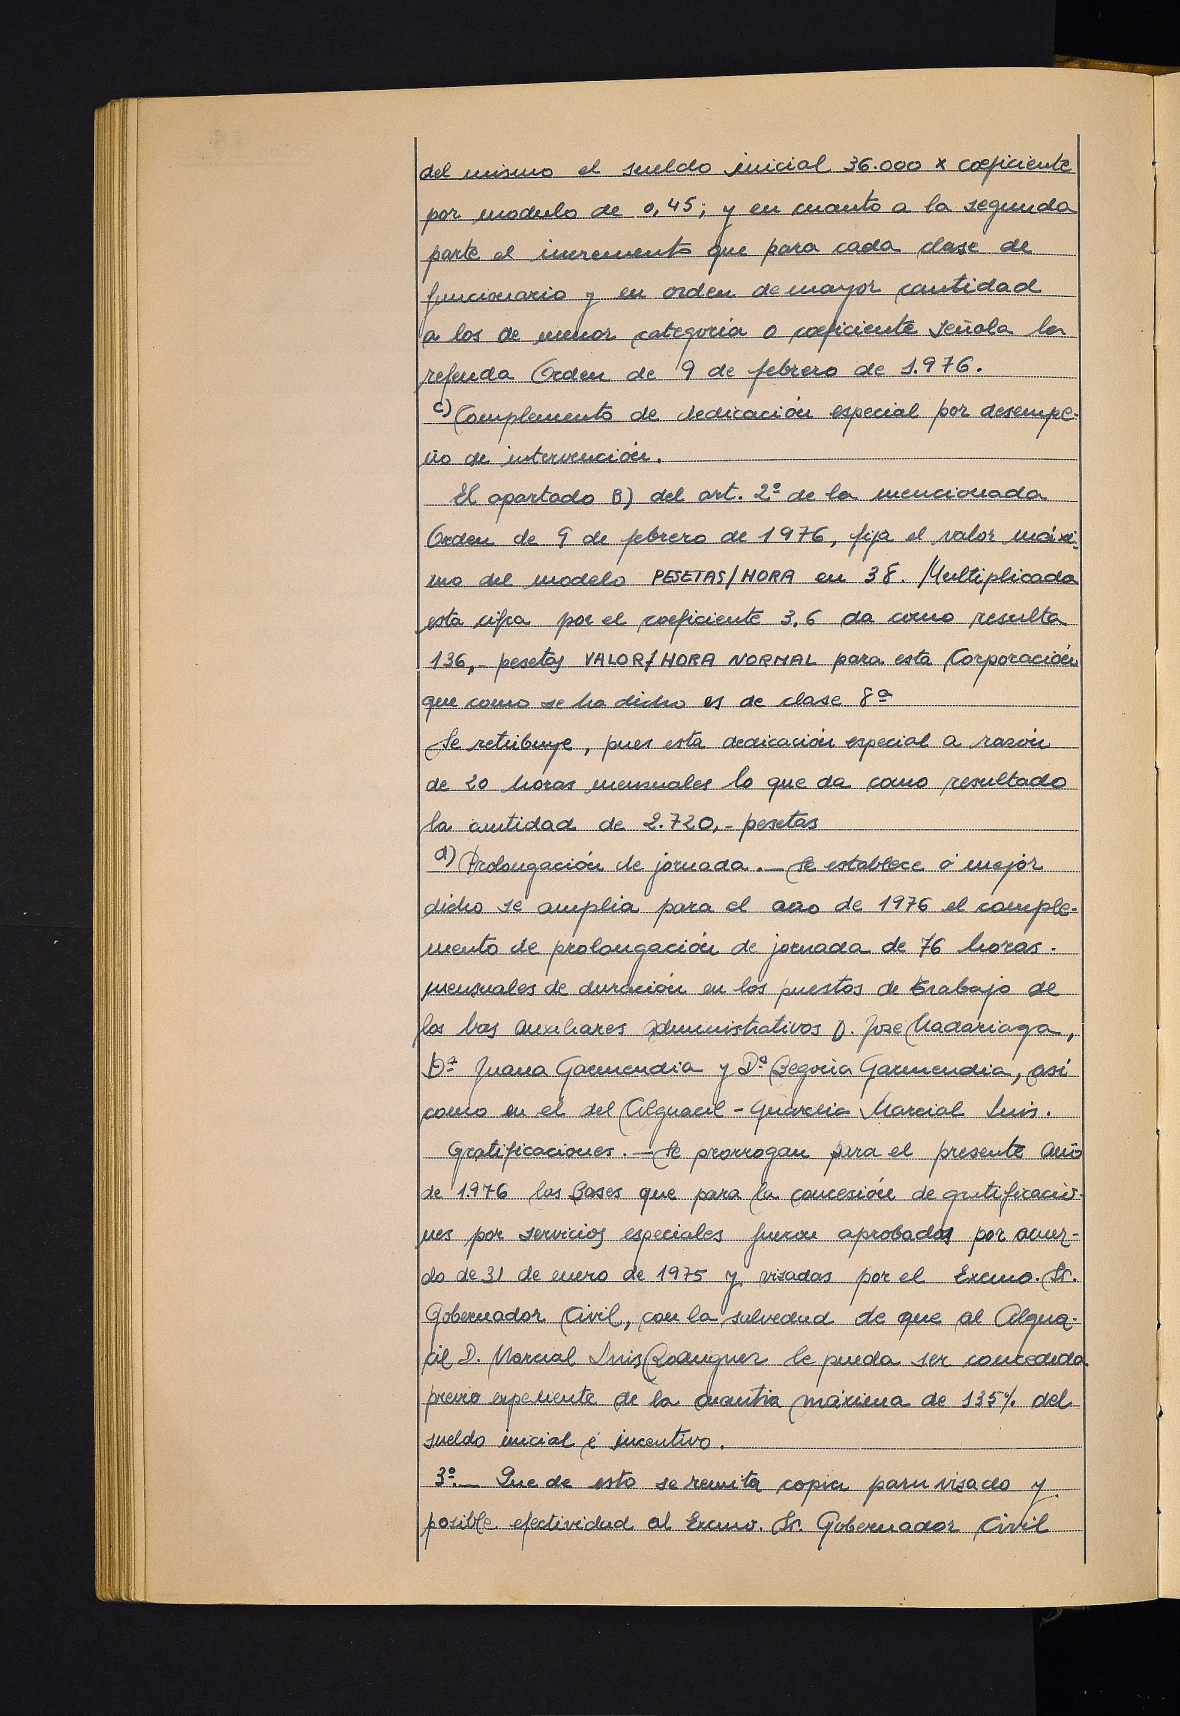 del mismo el sueldo inicial 36.000 x coeficiente
por modulo de 0,45; y en cuanto a la segunda
parte el incremento que para cada clase de
funcionario y en orden de mayor cantidad
a los de menor categoria o coeficiente señala la
referida Orden de 9 de febrero de 1.976.
c) Complemento de dedicación especial por desempe-
ño de intervención.
El apartado B) del art. 2º de la mencionada
Orden de 9 de febrero de 1976, fija el valor máxi-
mo del modelo PESETAS/HORA en 38. Multiplicada
esta cifra por el coeficiente 3,6 da como resulta
136,- pesetas VALOR/HORA NORMAL para esta Corporación
que como se ha dicho es de clase 8ª
Se retribuye, pues esta dedicación especial a razón
de 20 horas mensuales lo que da como resultado
la cantidad de 2.720,- pesetas
d) Prolongación de jornada.— Se establece ó mejor
dicho se amplia para el año de 1976 el comple-
mento de prolongación de jornada de 76 horas.
mensuales de duración en los puestos de trabajo de
los tres auxiliares administrativos D. Jose Madariaga,
Dª Juana Garmendia y Dª Begoña Garmendia, así
como en el del Alguacil - Guardia Marcial Luis.
Gratificaciones.— Se prorrogan para el presente año
de 1.976 las Bases que para la concesión de gratificacio-
nes por servicios especiales fueron aprobadas por acuer-
do de 31 de enero de 1975 y visadas por el Excmo. Sr.
Gobernador Civil, con la salvedad de que al Algua-
cil D. Marcial Luis Rodriguez le pueda ser concedida
previo expediente de la cuantia máxima de 135% del
sueldo inicial é incentivo.
3º.— Que de esto se remita copia para visado y
posible efectividad al Excmo. Sr. Gobernador Civil